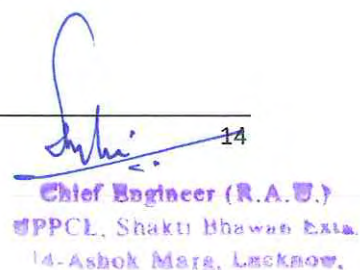 14
Chief Engineer (R.A.U.)
UPPCL, Shakti Bhawan Extn.
14-Ashok Marg, Lucknow.